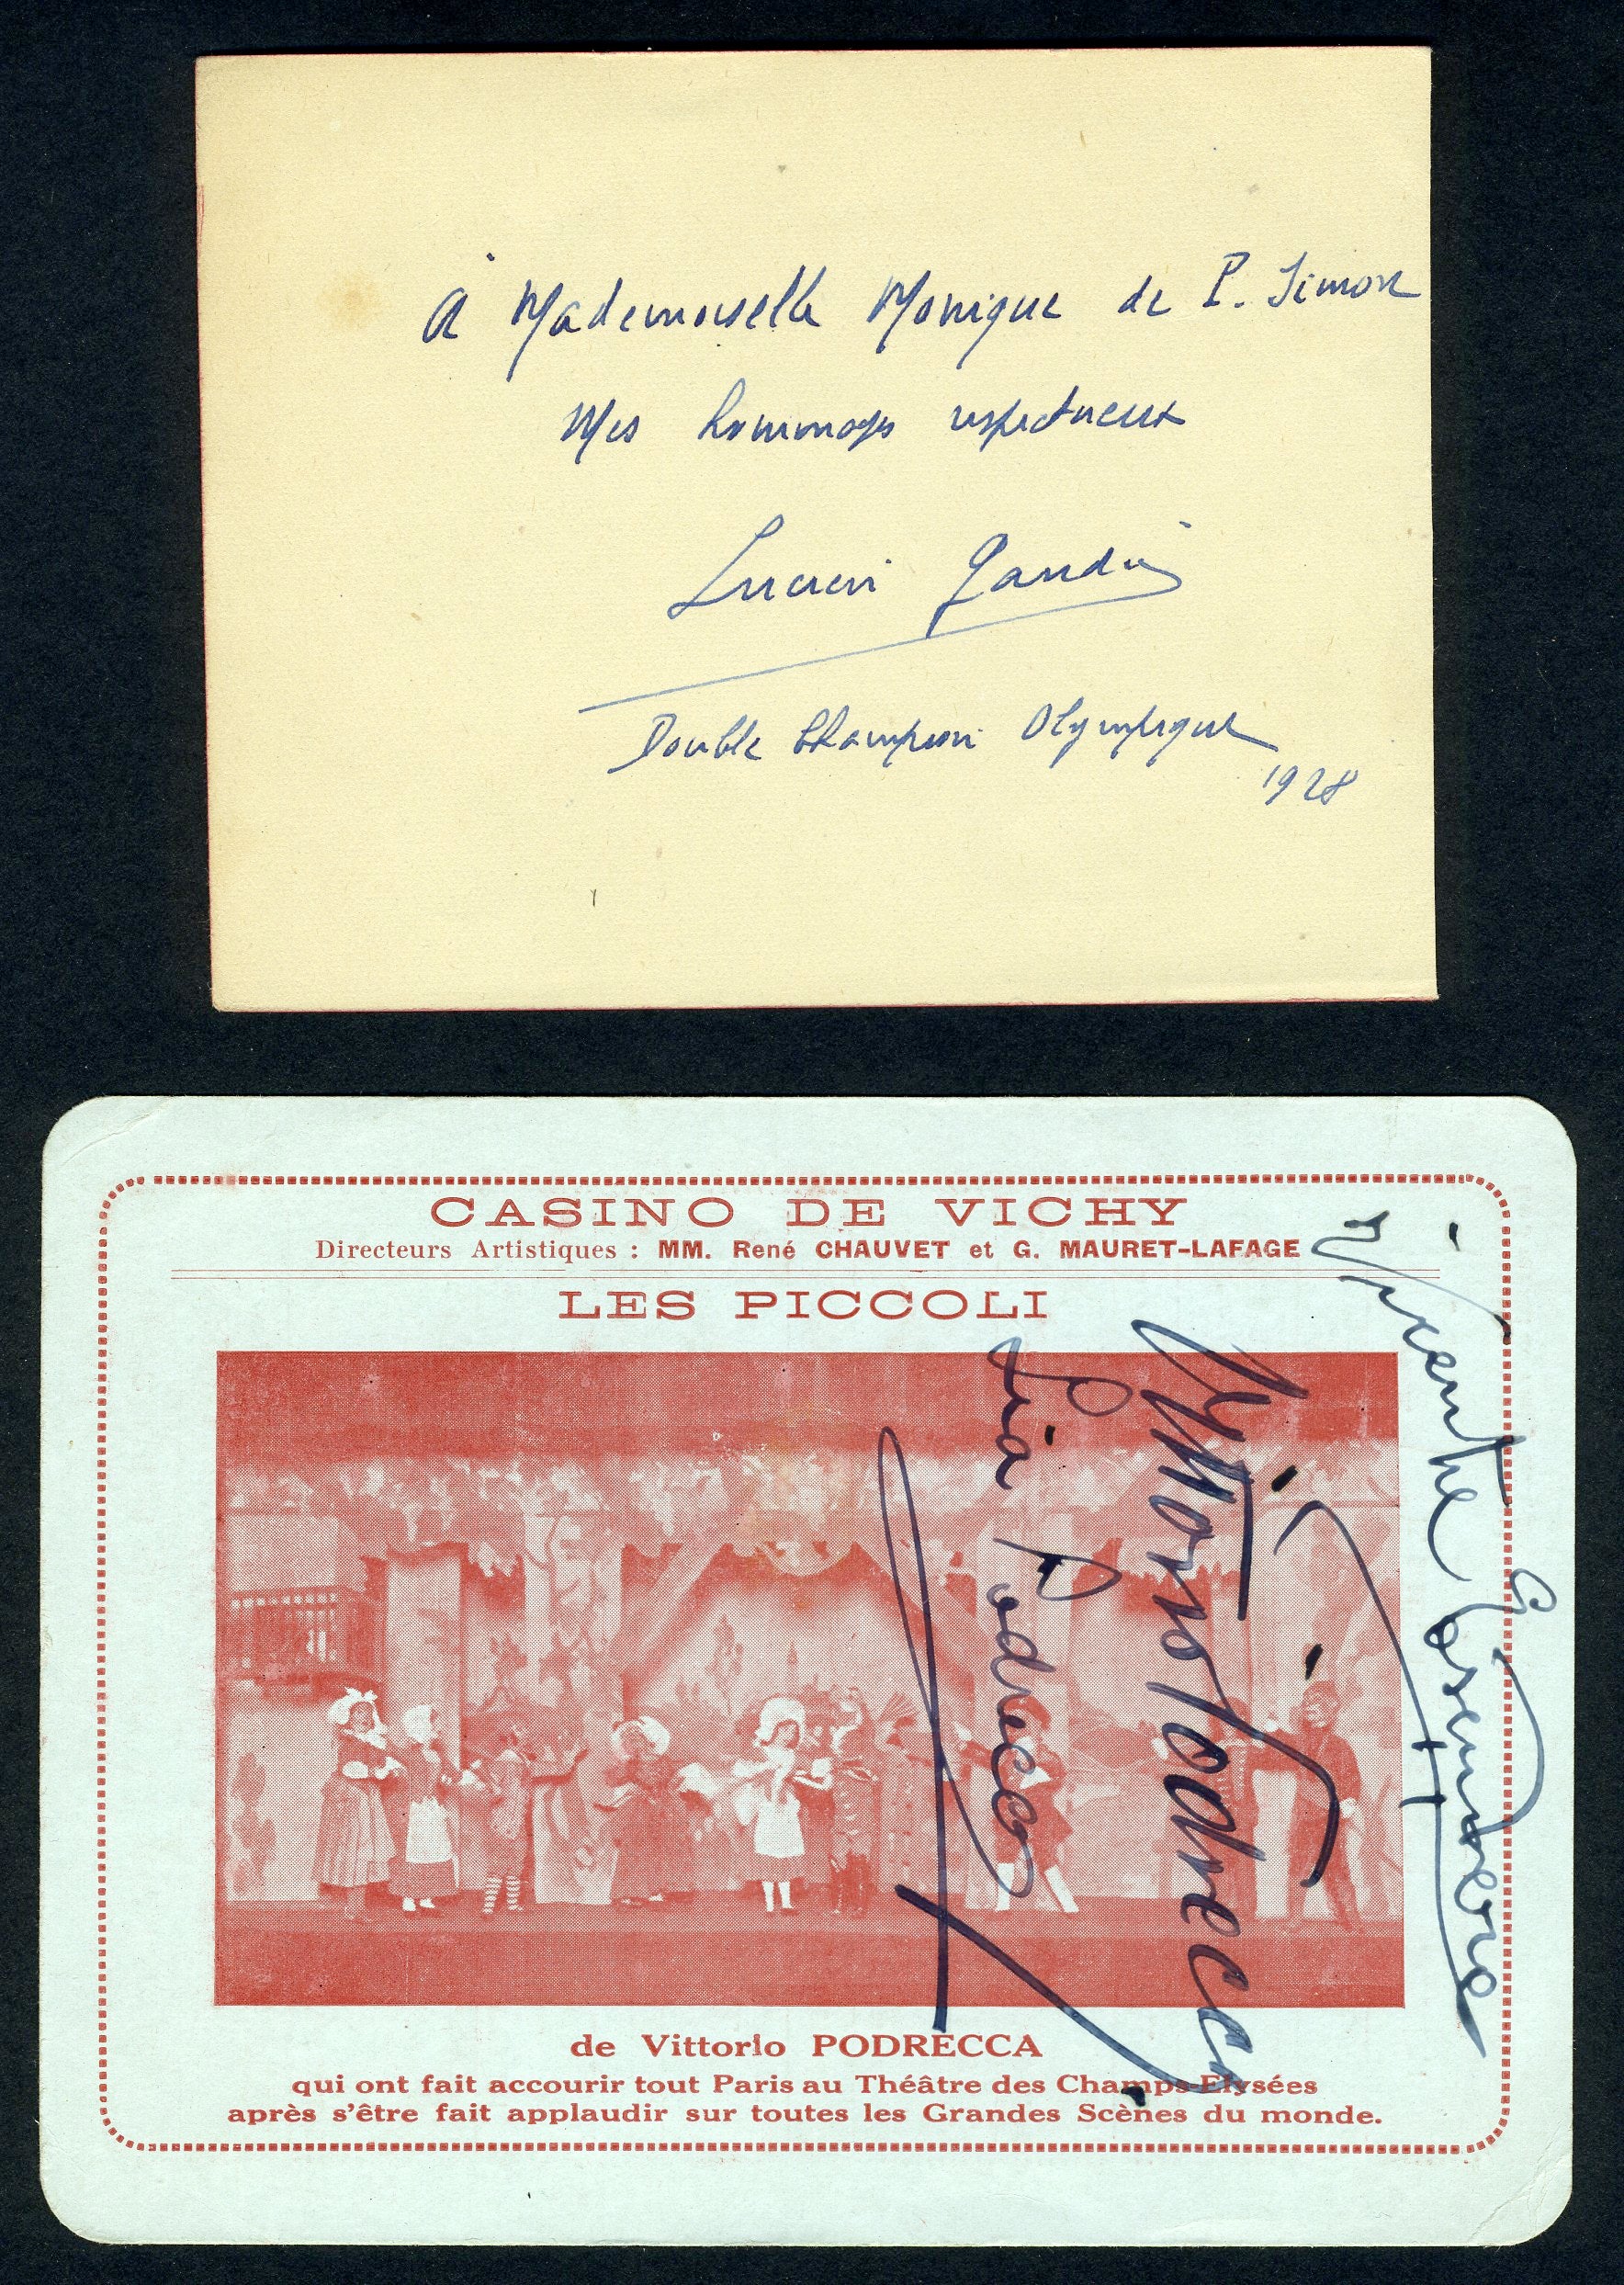 À Mademoiselle Monique de P. Simon
Mes hommages respectueux
Lucien Gaudin
Double Champion Olympique
1928
CASINO DE VICHY
Directeurs Artistiques : MM. René CHAUVET et G. MAURET-LAFAGE
LES PICCOLI
Vittorio Podrecca
Lia Podrecca
de Vittorio PODRECCA
qui ont fait accourir tout Paris au Théâtre des Champs-Elysées
après s'être fait applaudir sur toutes les Grandes Scènes du monde.